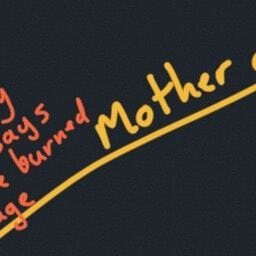 y
ays
e burned
age
Mother